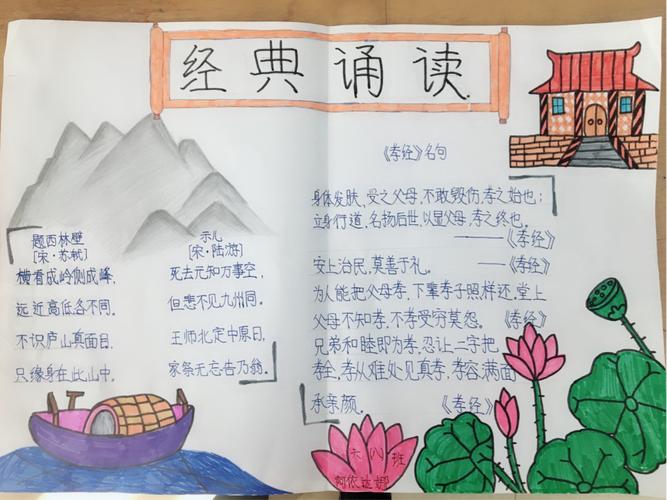 经典诵读
题西林壁
[宋·苏轼]
横看成岭侧成峰,
远近高低各不同。
不识庐山真面目,
只缘身在此山中。
示儿
[宋·陆游]
死去元知万事空,
但悲不见九州同。
王师北定中原日,
家祭无忘告乃翁。
《孝经》名句
身体发肤,受之父母,不敢毁伤,孝之始也;
立身行道,名扬后世,以显父母,孝之终也。
——《孝经》
安上治民,莫善于礼。 ——《孝经》
为人能把父母孝,下辈孝子照样还,堂上
父母不知孝,不孝受穷莫怨。《孝经》
兄弟和睦即为孝,忍让二字把
孝全,孝从难处见真孝,孝容满面
承亲颜。 《孝经》
六八班
阿依达娜